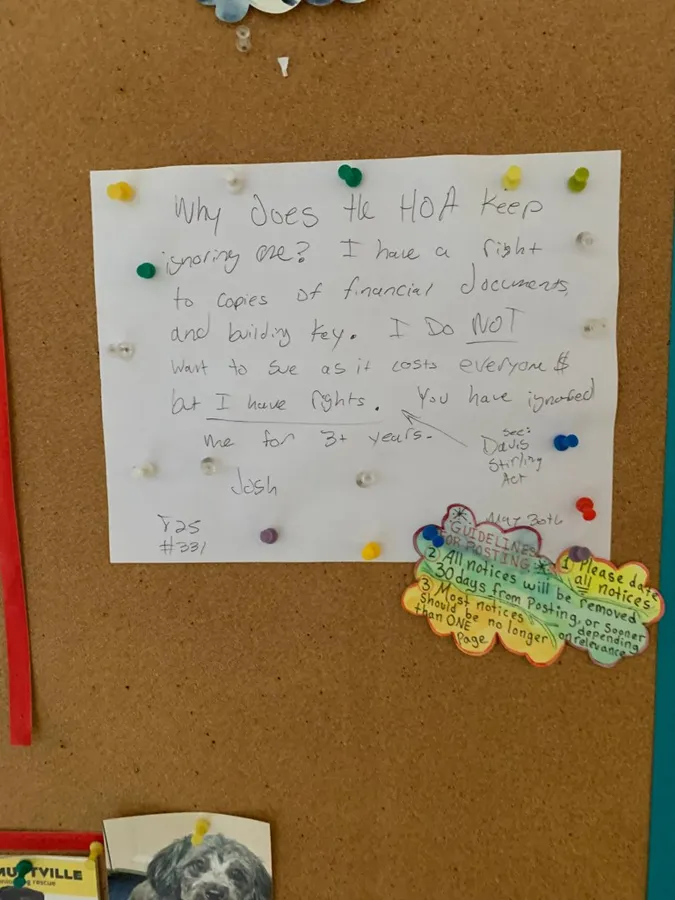 Why does the HOA keep
ignoring me? I have a right
to copies of financial documents,
and building key. I DO NOT
want to sue as it costs everyone $
but I have rights. You have ignored
me for 3+ years.
see:
Davis
Stirling
Act
Josh
May 30th
725
#331
* GUIDELINES
FOR POSTING: *
1) Please date
all notices
2) All notices will be removed
30 days from posting, or sooner
depending
on relevance
3) Most notices
should be no longer
than ONE
page